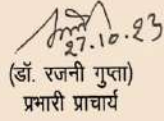 27.10.23
(डॉ. रजनी गुप्ता)
प्रभारी प्राचार्य